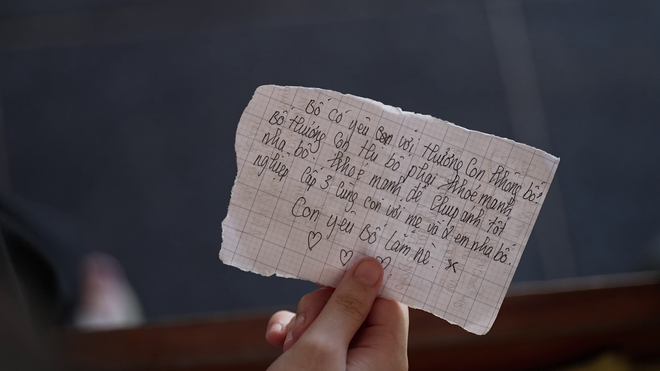 Bố có yêu con với thương con không bố?
Bố thương con thì bố phải khoẻ mạnh
nha bố. Khoẻ mạnh để chụp ảnh tốt
nghiệp cấp 3 cùng con với mẹ và 2 em nha bố.
Con yêu Bố lắm nè.